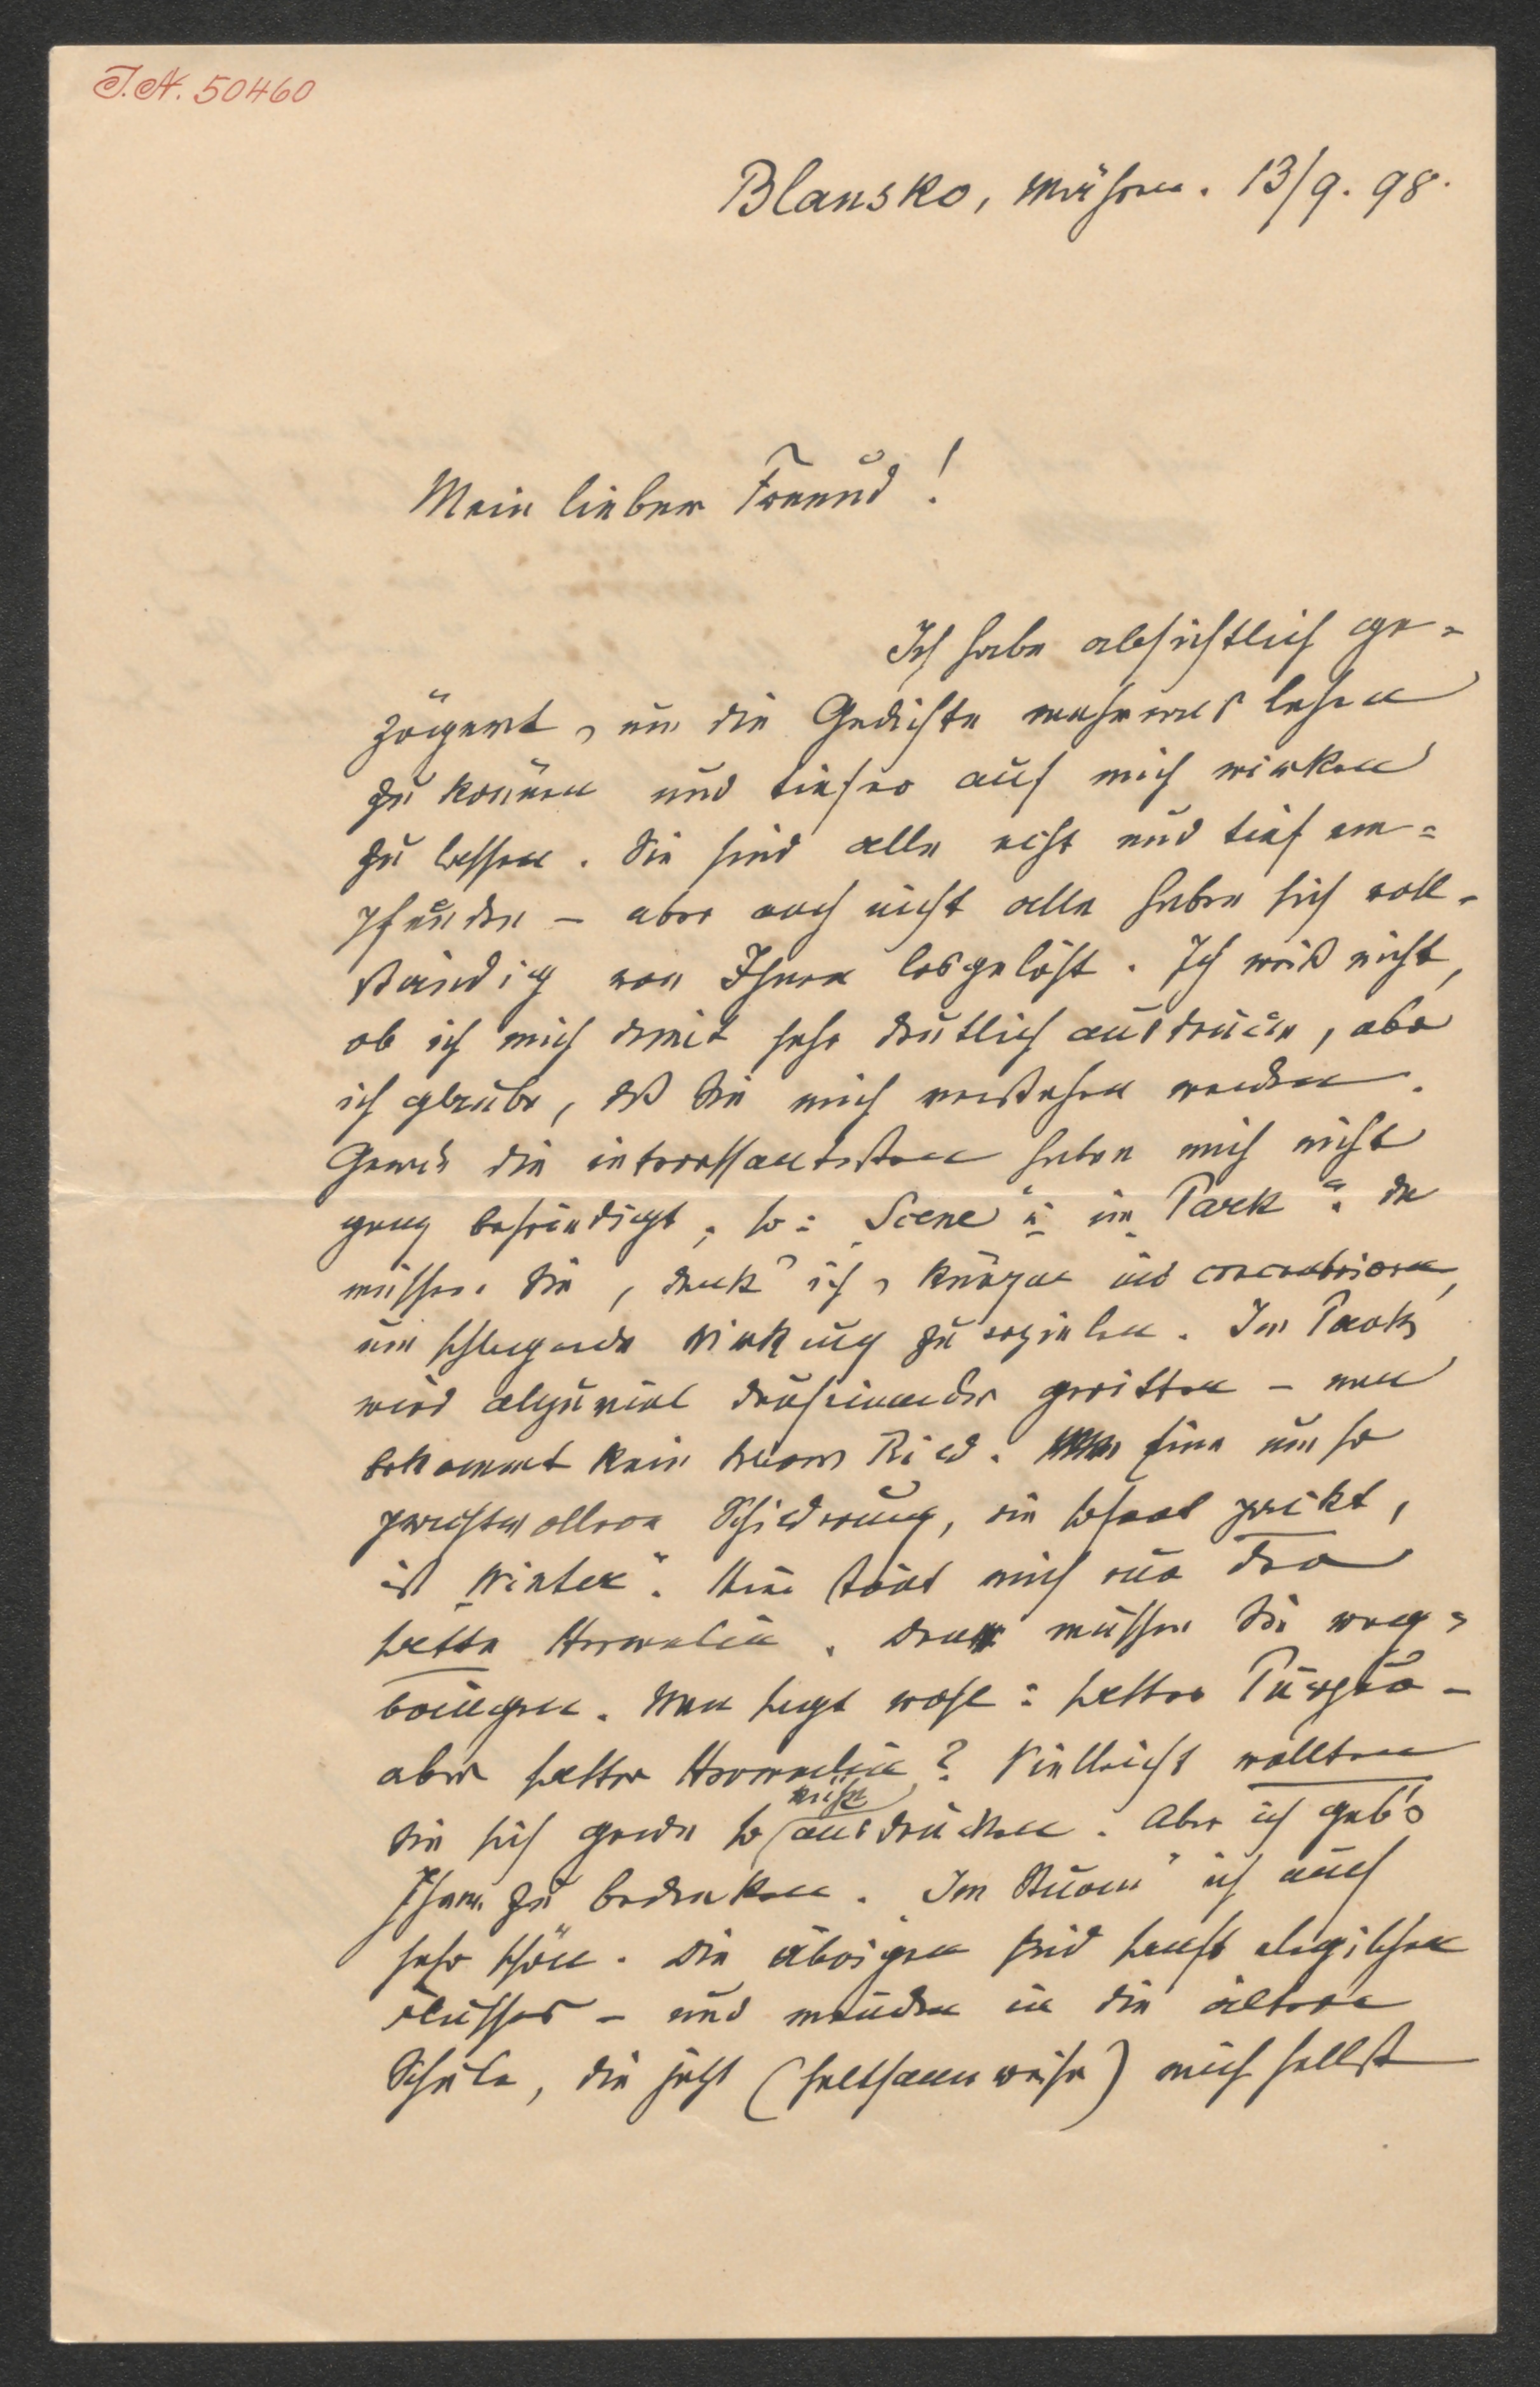 I.N. 50460
Blansko, Mähren. 13/9. 98.
Mein lieber Freund!
Ich habe absichtlich ge=
zögert, um die Gedichte mehrmals lesen
zu können und tiefer auf mich wirken
zu lassen. Sie sind alle echt und tief em=
pfunden – aber noch nicht alle haben sich voll=
ständig von Ihnen losgelöst. Ich weiß nicht,
ob ich mich damit sehr deutlich ausdrücke, aber
ich glaube, daß Sie mich verstehen werden.
Gerade die interessantesten haben mich nicht
ganz befriedigt; so: „Scene" u „im Park". Da
müssen Sie, denk' ich, kürzen und concentriren,
um schlagende Wirkung zu erzielen. Im Park
wird allzuviel durcheinander geritten – man
bekommt kein klares Bild. Eine um so
prachtvollere Schilderung, die scharf packt,
ist „Winter". Hier stört mich nur der
satte Hermelin. Den müssen Sie weg=
bringen. Man sagt wohl: satter Purpur –
aber satter Hermelin? Vielleicht wollten
Sie sich gerade so nicht ausdrücken. Aber ich geb's
Ihnen zu bedenken. „Im Sturm" ist auch
sehr schön. Die übrigen sind sanft elegischen
Flusses – und münden in die ältere
Schule, die jetzt (seltsamerweise) mich selbst